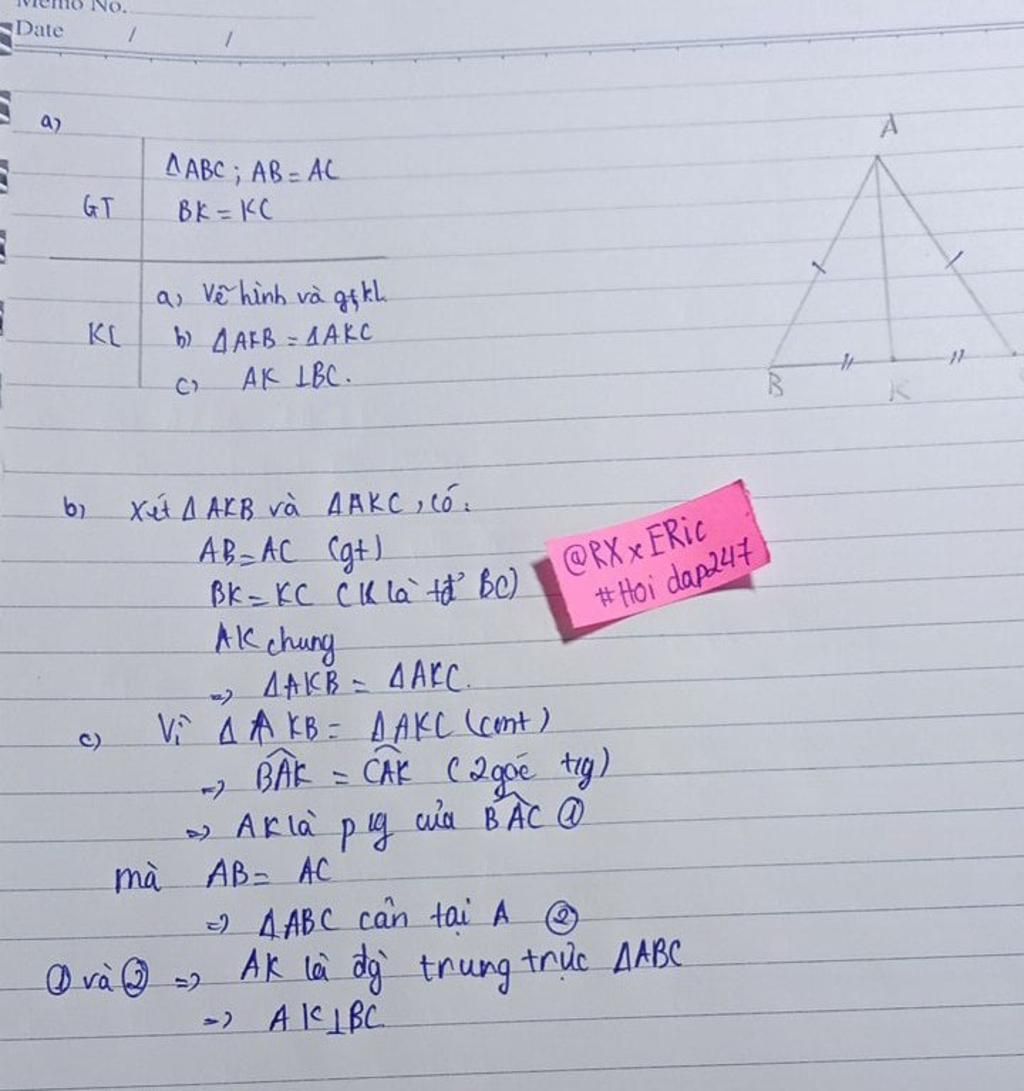 Memo No.
Date / /
a)
GT
ΔABC; AB = AC
BK = KC
KL
a) Vẽ hình và gt, kl.
b) ΔAKB = ΔAKC
c) AK ⊥ BC.
A
B
K
b) Xét ΔAKB và ΔAKC, có:
AB = AC (gt)
BK = KC (K là tđ BC)
AK chung
=> ΔAKB = ΔAKC.
c) Vì ΔAKB = ΔAKC (cmt)
=> BÂK = CÂK (2 góc t/g)
=> AK là p/g của BÂC ①
mà AB = AC
=> ΔABC cân tại A ②
① và ② => AK là đg` trung trực ΔABC
=> AK ⊥ BC
@RX x ERic
#Hoi dap247